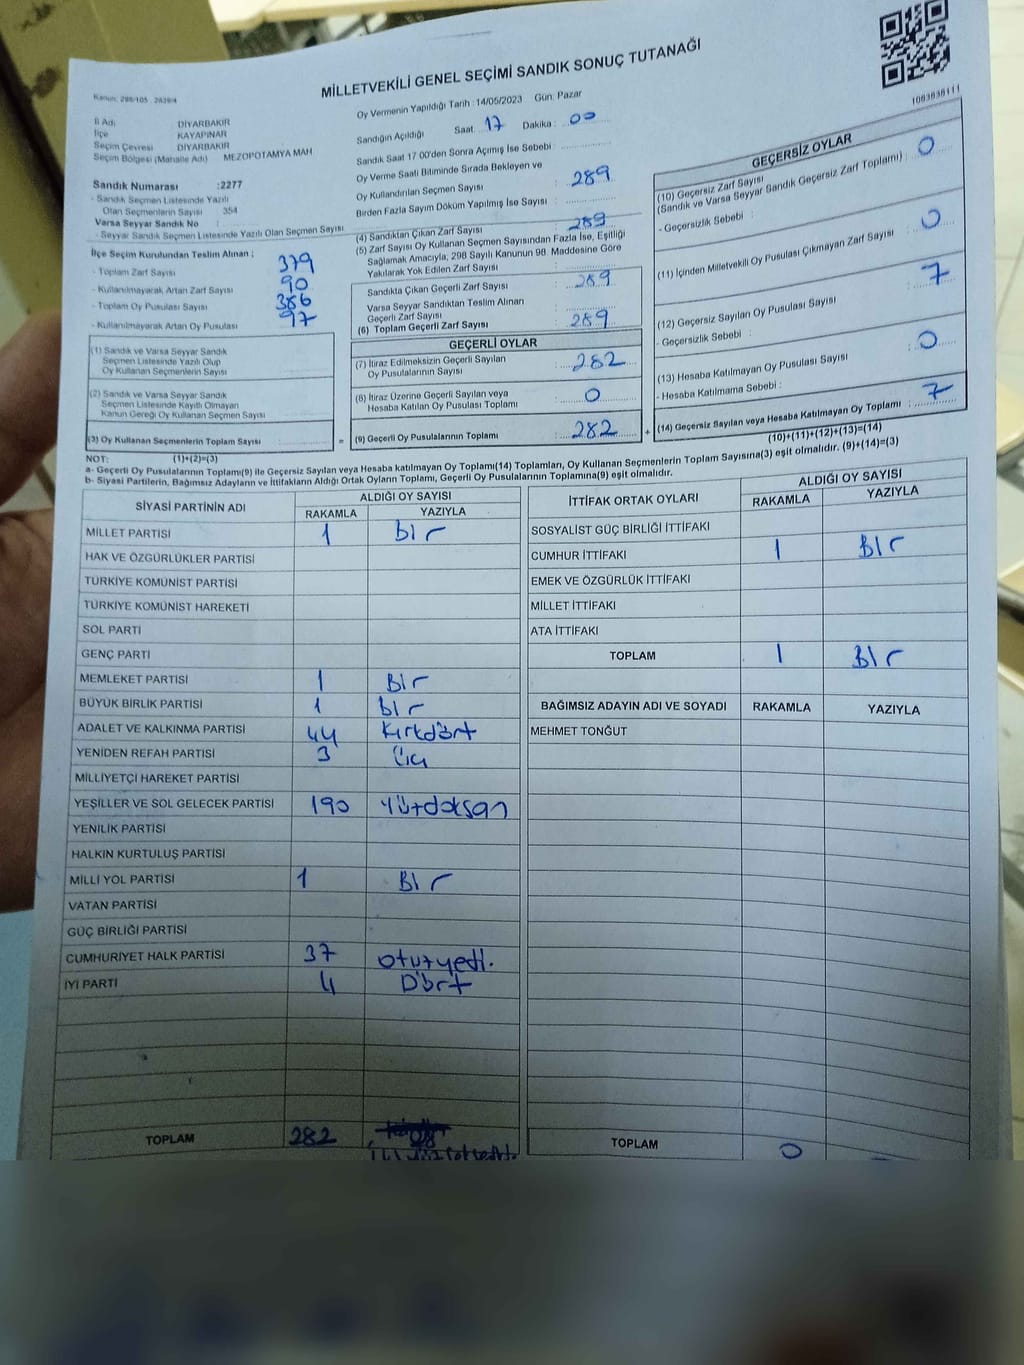 MİLLETVEKİLİ GENEL SEÇİMİ SANDIK SONUÇ TUTANAĞI
1083838111
İl Adı DİYARBAKIR
İlçe KAYAPINAR
Seçim Çevresi DİYARBAKIR
Seçim Bölgesi (Mahalle Adı) MEZOPOTAMYA MAH
Sandık Numarası :2277
- Sandık Seçmen Listesinde Yazılı
Olan Seçmenlerin Sayısı 354
Varsa Seyyar Sandık No :
- Seyyar Sandık Seçmen Listesinde Yazılı Olan Seçmen Sayısı
Oy Vermenin Yapıldığı Tarih : 14/05/2023 Gün: Pazar
Sandığın Açıldığı Saat : 17 Dakika : 00
Sandık Saat 17 00'den Sonra Açımış İse Sebebi :
Oy Verme Saati Bitiminde Sırada Bekleyen ve
Oy Kullandırılan Seçmen Sayısı : 289
Birden Fazla Sayım Döküm Yapılmış İse Sayısı :
İlçe Seçim Kurulundan Teslim Alınan ;
- Toplam Zarf Sayısı 379
- Kullanılmayarak Artan Zarf Sayısı 90
- Toplam Oy Pusulası Sayısı 386
- Kullanılmayarak Artan Oy Pusulası 97
(1) Sandık ve Varsa Seyyar Sandık
Seçmen Listesinde Yazılı Olup
Oy Kullanan Seçmenlerin Sayısı :
(2) Sandık ve Varsa Seyyar Sandık
Seçmen Listesinde Kayıtlı Olmayan
Kanun Gereği Oy Kullanan Seçmen Sayısı :
(3) Oy Kullanan Seçmenlerin Toplam Sayısı :
(4) Sandıktan Çıkan Zarf Sayısı : 289
(5) Zarf Sayısı Oy Kullanan Seçmen Sayısından Fazla İse, Eşitliği
Sağlamak Amacıyla, 298 Sayılı Kanunun 98. Maddesine Göre
Yakılarak Yok Edilen Zarf Sayısı :
Sandıkta Çıkan Geçerli Zarf Sayısı : 289
Varsa Seyyar Sandıktan Teslim Alınan
Geçerli Zarf Sayısı :
(6) Toplam Geçerli Zarf Sayısı : 289
GEÇERLİ OYLAR
(7) İtiraz Edilmeksizin Geçerli Sayılan
Oy Pusulalarının Sayısı : 282
(8) İtiraz Üzerine Geçerli Sayılan veya
Hesaba Katılan Oy Pusulası Toplamı : 0
= (9) Geçerli Oy Pusulalarının Toplamı : 282 +
GEÇERSİZ OYLAR
(10) Geçersiz Zarf Sayısı
(Sandık ve Varsa Seyyar Sandık Geçersiz Zarf Toplamı) : 0
- Geçersizlik Sebebi :
(11) İçinden Milletvekili Oy Pusulası Çıkmayan Zarf Sayısı : 0
(12) Geçersiz Sayılan Oy Pusulası Sayısı : 7
- Geçersizlik Sebebi :
(13) Hesaba Katılmayan Oy Pusulası Sayısı : 0
- Hesaba Katılmama Sebebi :
(14) Geçersiz Sayılan veya Hesaba Katılmayan Oy Toplamı : 7
NOT: (1)+(2)=(3) (10)+(11)+(12)+(13)=(14)
a- Geçerli Oy Pusulalarının Toplamı(9) ile Geçersiz Sayılan veya Hesaba katılmayan Oy Toplamı(14) Toplamları, Oy Kullanan Seçmenlerin Toplam Sayısına(3) eşit olmalıdır. (9)+(14)=(3)
b- Siyasi Partilerin, Bağımsız Adayların ve İttifakların Aldığı Ortak Oyların Toplamı, Geçerli Oy Pusulalarının Toplamına(9) eşit olmalıdır.
SİYASİ PARTİNİN ADI ALDIĞI OY SAYISI
RAKAMLA YAZIYLA
MİLLET PARTİSİ 1 bir
HAK VE ÖZGÜRLÜKLER PARTİSİ
TÜRKİYE KOMÜNİST PARTİSİ
TÜRKİYE KOMÜNİST HAREKETİ
SOL PARTİ
GENÇ PARTİ
MEMLEKET PARTİSİ 1 Bir
BÜYÜK BİRLİK PARTİSİ 1 bir
ADALET VE KALKINMA PARTİSİ 44 Kırkdört
YENİDEN REFAH PARTİSİ 3 Üç
MİLLİYETÇİ HAREKET PARTİSİ
YEŞİLLER VE SOL GELECEK PARTİSİ 190 Yüzdoksan
YENİLİK PARTİSİ
HALKIN KURTULUŞ PARTİSİ
MİLLİ YOL PARTİSİ 1 Bir
VATAN PARTİSİ
GÜÇ BİRLİĞİ PARTİSİ
CUMHURİYET HALK PARTİSİ 37 otuzyedi.
İYİ PARTİ 4 Dört
TOPLAM 282
İTTİFAK ORTAK OYLARI ALDIĞI OY SAYISI
RAKAMLA YAZIYLA
SOSYALİST GÜÇ BİRLİĞİ İTTİFAKI
CUMHUR İTTİFAKI 1 Bir
EMEK VE ÖZGÜRLÜK İTTİFAKI
MİLLET İTTİFAKI
ATA İTTİFAKI
TOPLAM 1 Bir
BAĞIMSIZ ADAYIN ADI VE SOYADI RAKAMLA YAZIYLA
MEHMET TONĞUT
TOPLAM 0